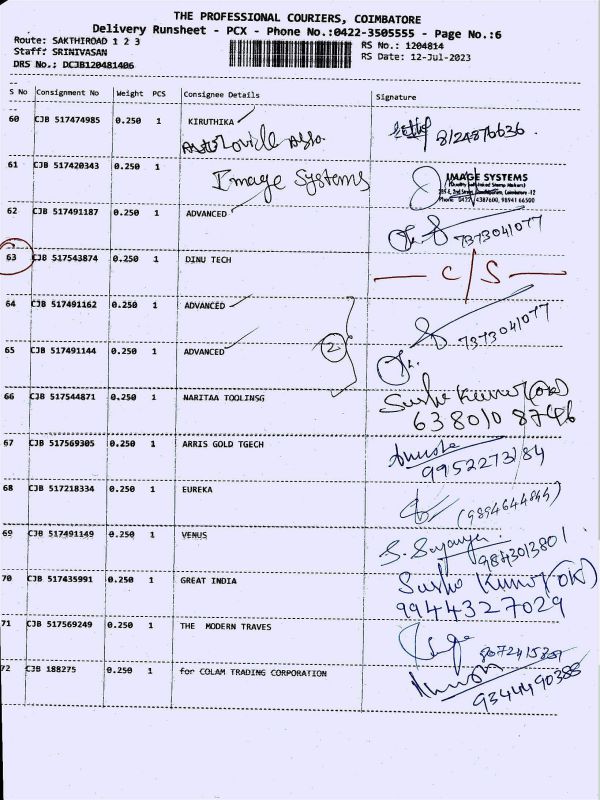 THE PROFESSIONAL COURIERS, COIMBATORE
Delivery Runsheet - PCX - Phone No.:0422-3505555 - Page No.:6
Route: SAKTHIROAD 1 2 3
RS No.: 1204814
Staff: SRINIVASAN
RS Date: 12-Jul-2023
DRS No.: DCJB120481406
S No Consignment No Weight PCS Consignee Details Signature
60 CJB 517474985 0.250 1 KIRUTHIKA 8124876636.
61 CJB 517420343 0.250 1 Image Systems
IMAGE SYSTEMS
62 CJB 517491187 0.250 1 ADVANCED 7373041077
63 CJB 517543874 0.250 1 DINU TECH C/S
64 CJB 517491162 0.250 1 ADVANCED 7373041077
2
65 CJB 517491144 0.250 1 ADVANCED
66 CJB 517544871 0.250 1 NARITAA TOOLINSG
6380108746
67 CJB 517569305 0.250 1 ARRIS GOLD TGECH
9952273184
68 CJB 517218334 0.250 1 EUREKA
69 CJB 517491149 0.250 1 VENUS
70 CJB 517435991 0.250 1 GREAT INDIA
9944327029
71 CJB 517569249 0.250 1 THE MODERN TRAVES
72 CJB 188275 0.250 1 for COLAM TRADING CORPORATION
9344490388